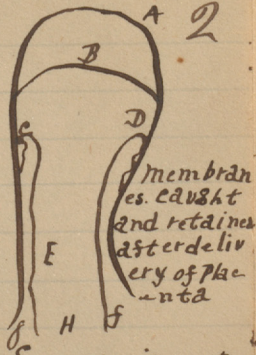 A
2
B
C
D
membran
es. caught
and retained
after deliv
ery of Plac
enta
E
H
f